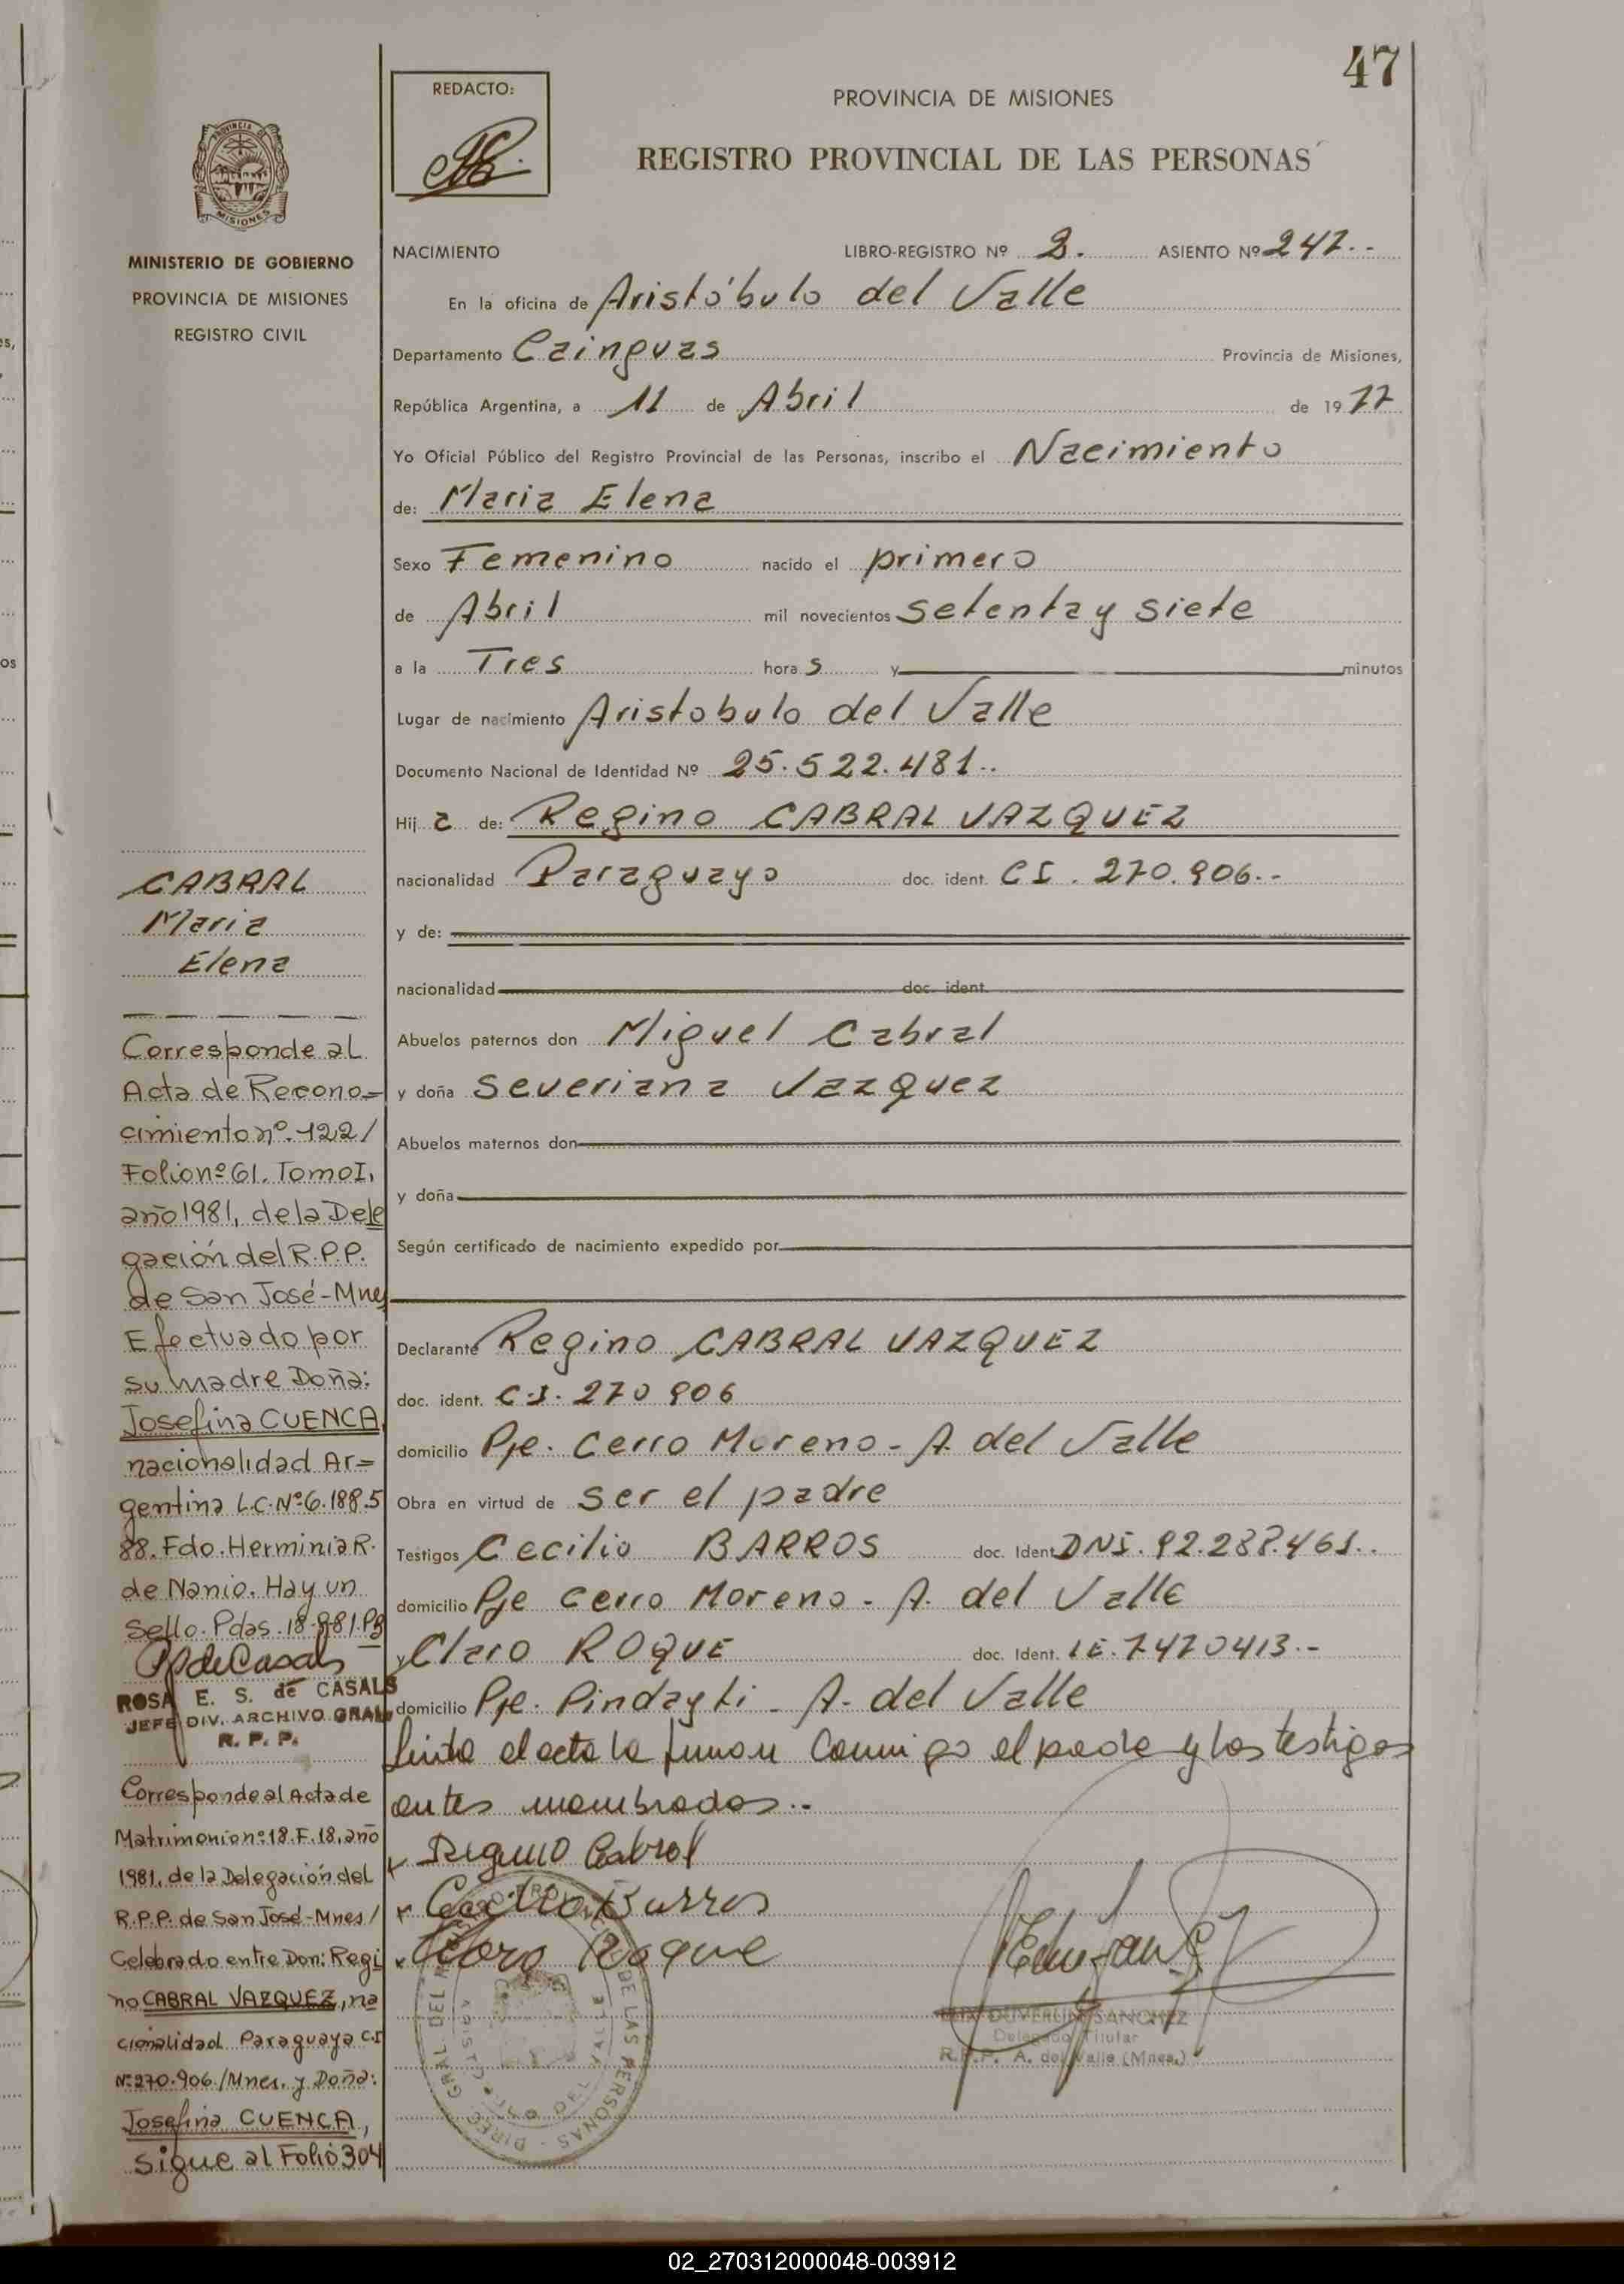 47
REDACTO:
PROVINCIA DE MISIONES
REGISTRO PROVINCIAL DE LAS PERSONAS
PROVINCIA DE
MISIONES
MINISTERIO DE GOBIERNO
PROVINCIA DE MISIONES
REGISTRO CIVIL
NACIMIENTO LIBRO-REGISTRO Nº 2. ASIENTO Nº 247..
En la oficina de Aristóbulo del Valle
Departamento Cainguas Provincia de Misiones,
República Argentina, a 11 de Abril de 1977
Yo Oficial Público del Registro Provincial de las Personas, inscribo el Nacimiento
de: Maria Elena
Sexo Femenino nacido el primero
de Abril mil novecientos setenta y siete
a la Tres hora s y minutos
Lugar de nacimiento Aristobulo del Valle
Documento Nacional de Identidad Nº 25.522.481..
Hij a de: Regino CABRAL VAZQUEZ
nacionalidad Paraguayo doc. ident. CI. 270.906.-
y de:
nacionalidad doc. ident.
Abuelos paternos don Miguel Cabral
y doña Severiana Vazquez
Abuelos maternos don
y doña
Según certificado de nacimiento expedido por
Declarante Regino CABRAL VAZQUEZ
doc. ident. C.I. 270 906
domicilio Pje. Cerro Moreno - A. del Valle
Obra en virtud de ser el padre
Testigos Cecilio BARROS doc. Ident DNI.
domicilio Pje Cerro Moreno - A. del Valle
y Claro ROQUE doc. Ident. LE. 7470413.-
domicilio Pje. Pindayti - A. del Valle
el acta la conmigo el padre y los testigos
antes nombrados..
Regino Cabral
Cecilio Barros
Claro Roque
SANCHEZ
Delegado Titular
R.P.P. A. del Valle (Mnes.)
CABRAL
Maria
Elena
Corresponde al
Acta de Recono=
cimiento nº. 122/
Folio nº 61. Tomo I,
año 1981, de la Dele
gación del R.P.P.
de San José-Mnes
Efectuado por
su madre Doña:
Josefina CUENCA,
nacionalidad Ar=
gentina L.C. Nº 6.188.5
88. Fdo. Herminia R.
de Nanio. Hay un
Sello. Pdas.
ROSA E. S. de CASALS
JEFE DIV. ARCHIVO GRAL.
R. P. P.
Corresponde al Acta de
Matrimonio nº 18. F. 18, año
1981, de la Delegación del
R.P.P. de San José-Mnes/
Celebrado entre Don: Regi
no CABRAL VAZQUEZ, na
cionalidad Paraguaya C.I
Nº 270.906./Mnes. y Doña:
Josefina CUENCA,
sigue al Folio 304
02_270312000048-003912